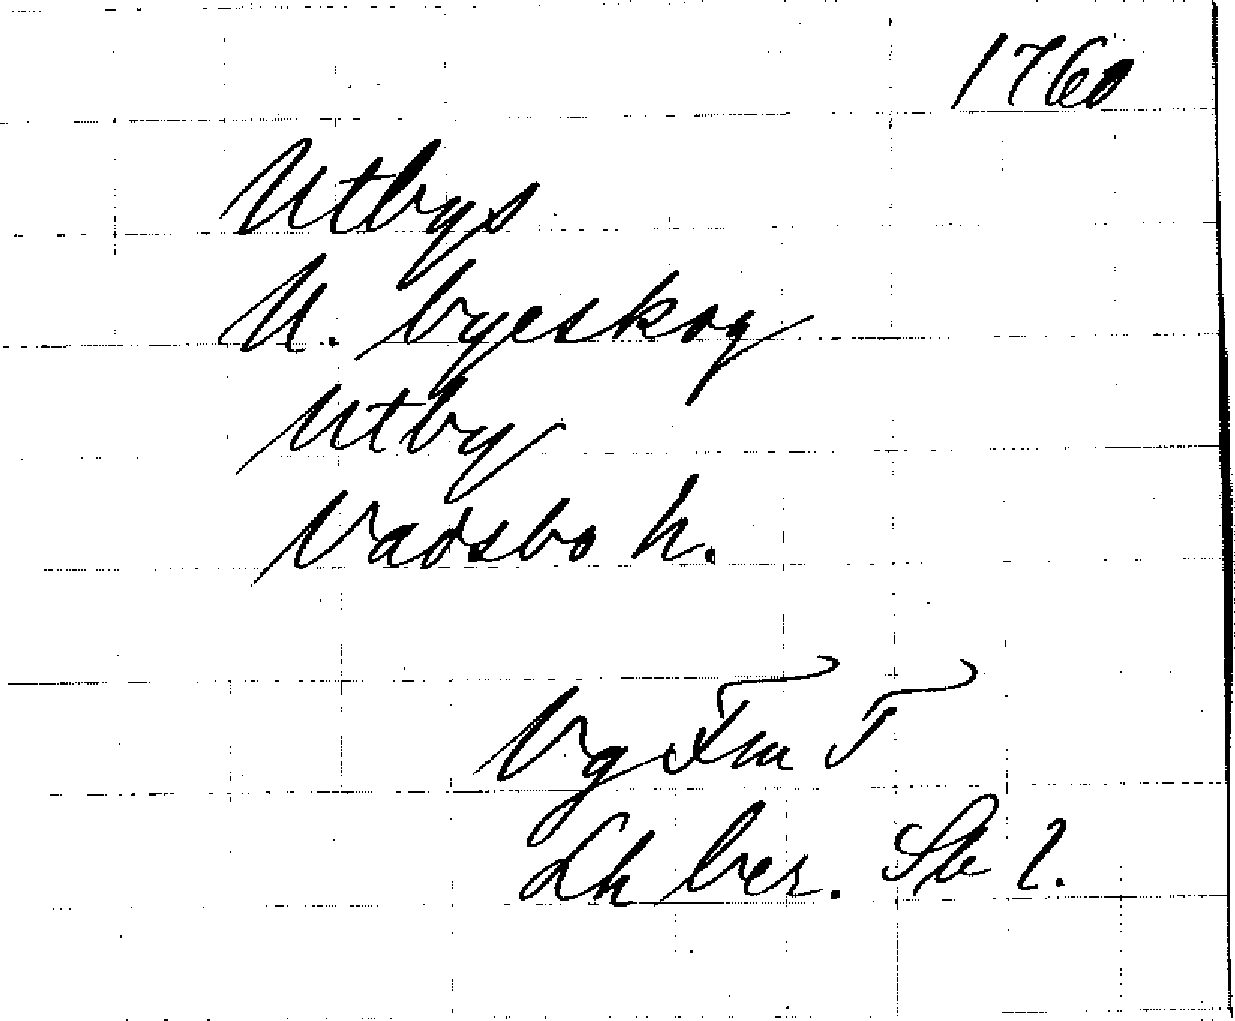 1760
Utbys
U. byeskog
Utby
Vadsbo h.
Vg Fm T
Lh ber. Sb l.